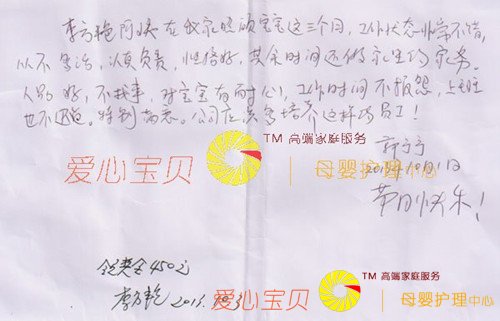 李方艳阿姨在我家照顾宝宝这三个月,工作状态非常不错,
从不多话,认真负责,性格好,其余时间还做家里的家务。
人品好,不找事,对宝宝有耐心,工作时间不抱怨,上班
也不迟。特别满意。公司应该多培养这样的员工!
TM 高端家庭服务
爱心宝贝 母婴护理中心
10月1日
节日快乐!
领奖金450元
TM 高端家庭服务
李方艳 201
爱心宝贝 母婴护理中心